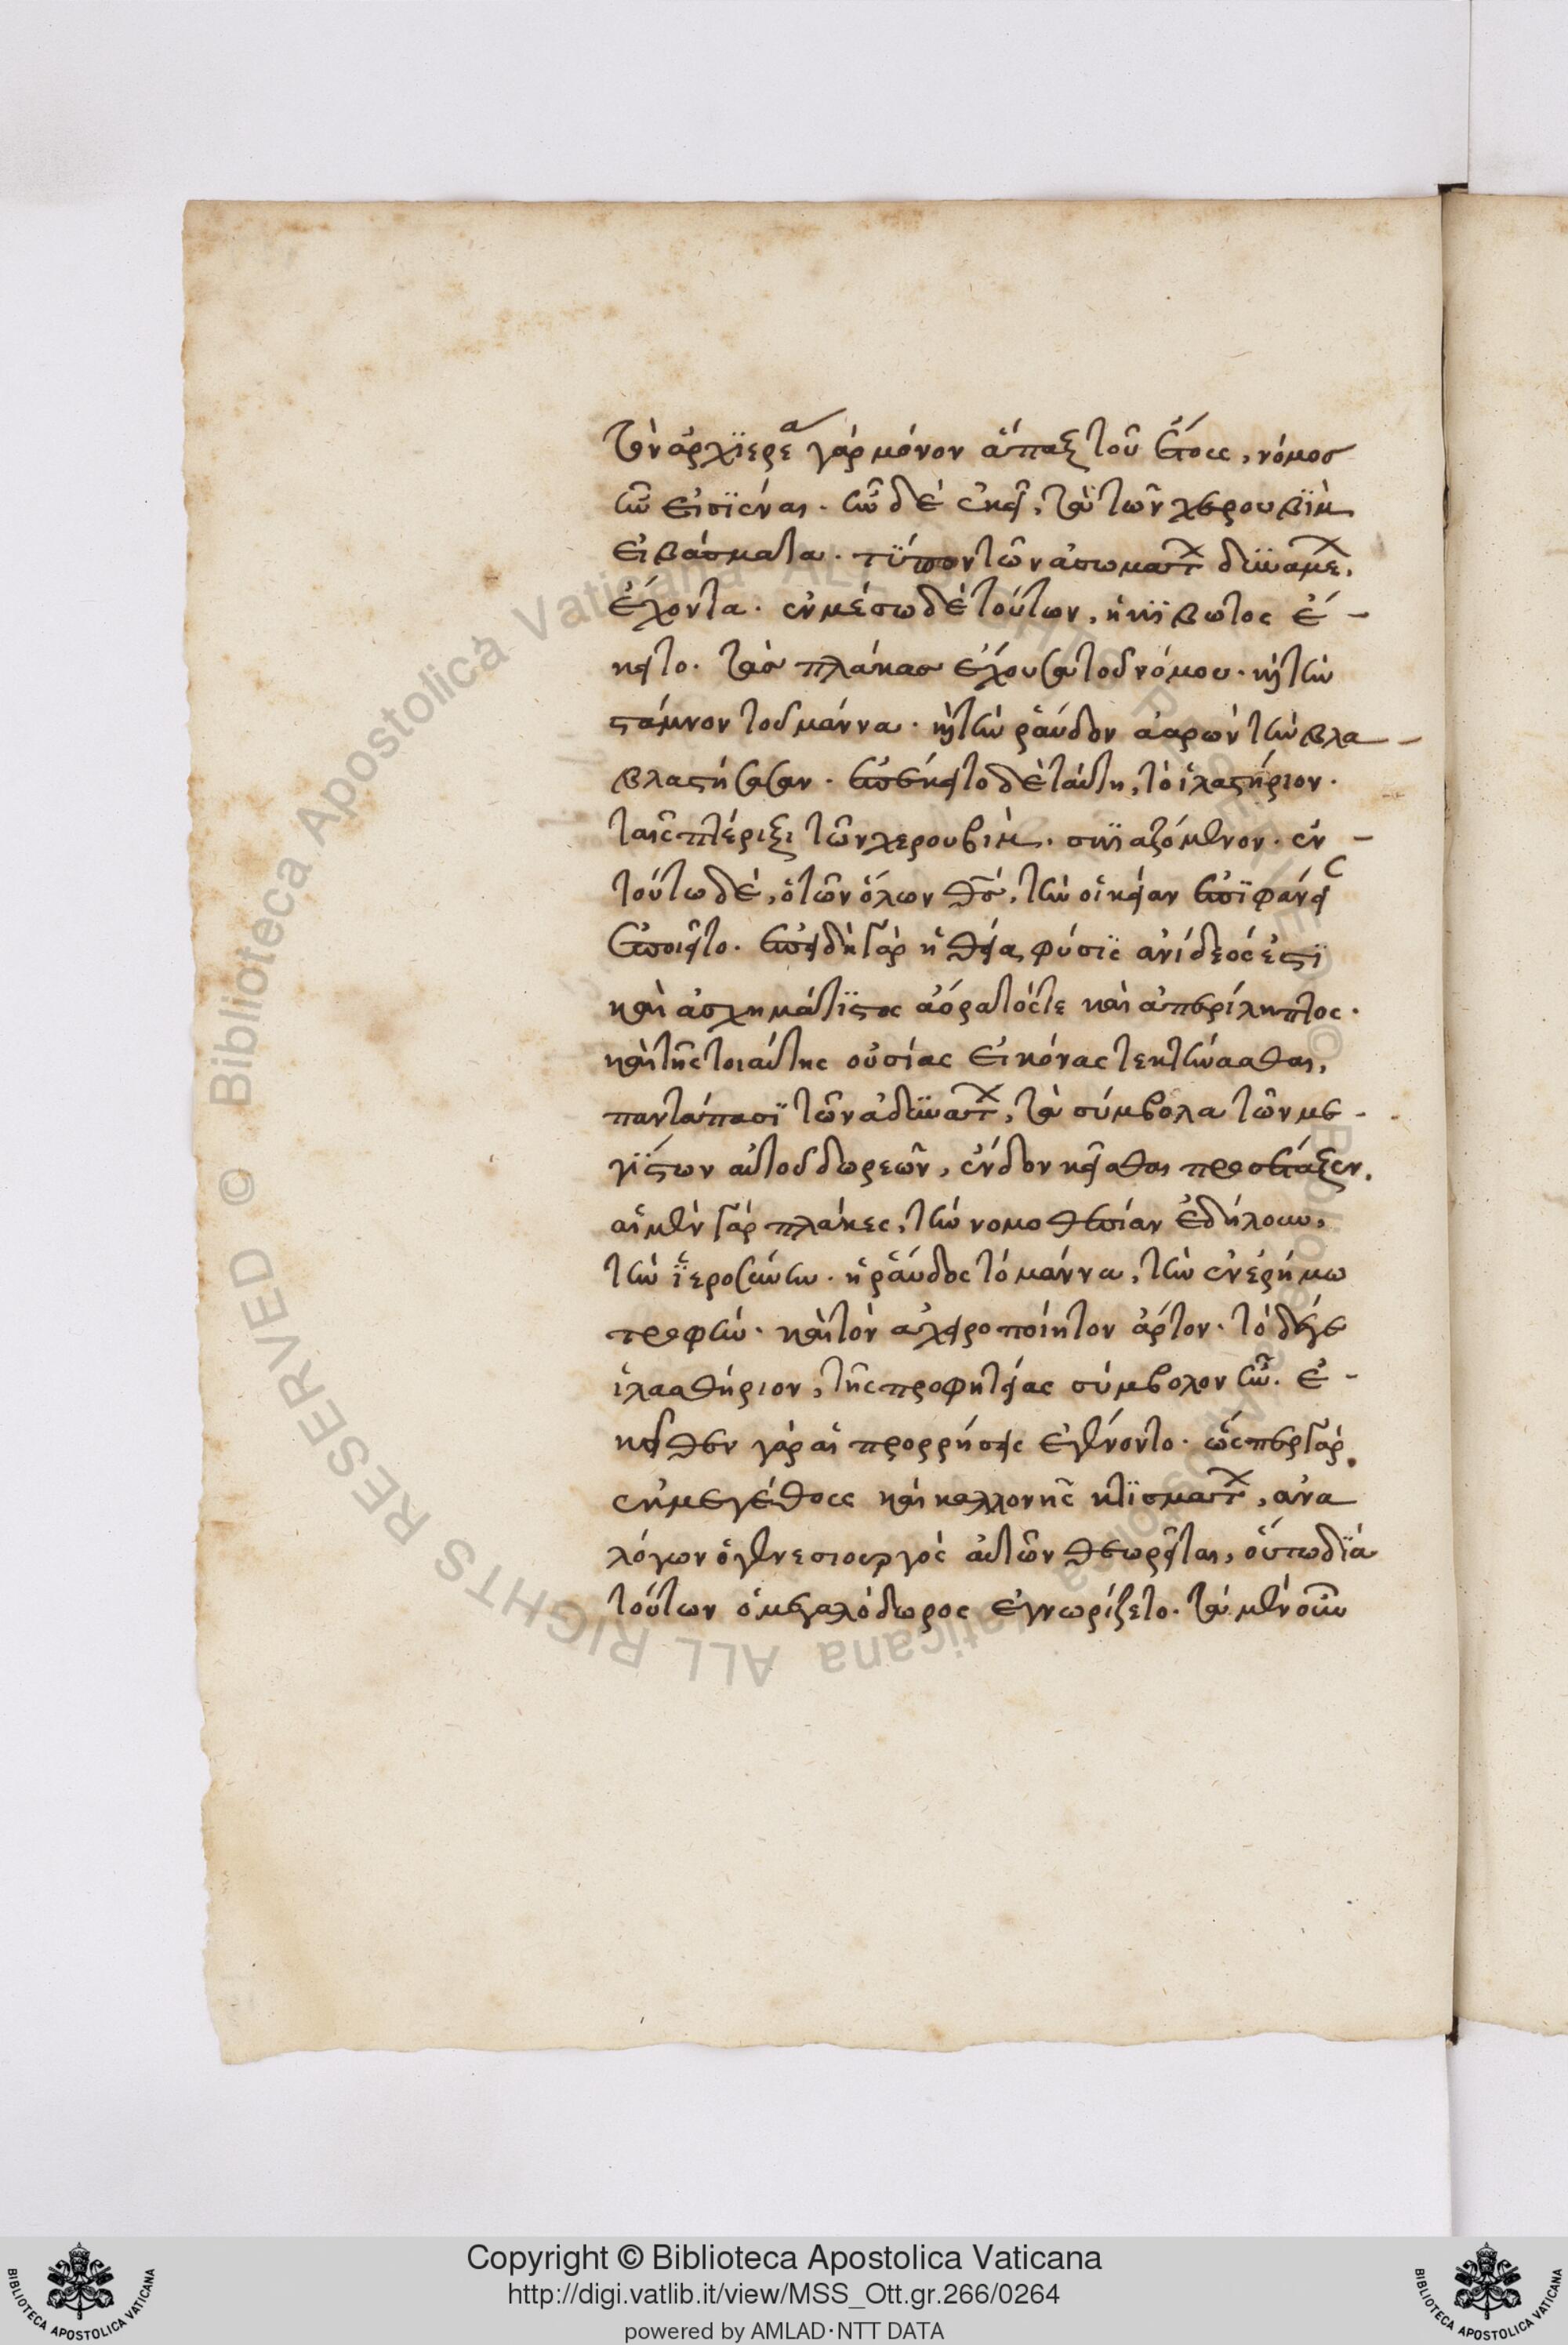 τὸν ἀρχϊερέα γὰρ μόνον ἅπαξ τοῦ ἔτους, νόμοσ
ἦν εἰσϊέναι. ἦν δὲ ἐκεῖ, τὰ τῶν χερουβὶμ
εἰβάσματα. τύπον τῶν ἀσωμάτ δυνάμε,
ἔχοντα. ἐν μέσω δὲ τούτων, ἡ κϊβωτος ἔ-
κειτο. τὰσ πλάκασ ἔχουσα τοῦ νόμου. κὶ τὴν
στάμνον τοῦ μάννα. κὶ τὴν ράυδον ἀαρὼν τὴν βλα-
βλαστήσασαν. ἐπέκειτο δὲ ταύτη, τὸ ἱλαστήριον.
ταῖς πτέριξι τῶν χερουβὶμ. σκϊαζόμενον. ἐν-
τούτω δὲ, ὁ τῶν ὅλων θσ, τὴν οἰκείαν ἐπϊφάνει
ἐποιεῖτο. ἐπειδὴ γὰρ ἡ θεία φύσϊς ἀνίδεός ἐστϊ
καὶ ἀσχημάτϊστος ἀόρατός τε καὶ ἀπερίληπτος.
καὶ τῆς τοιαύτης οὐσίας εἰκόνας τεκτήνασθαι,
παντάπασϊ τῶν ἀδυνάτ, τὰ σύμβολα τῶν με-
γΐστων αὐτοῦ δωρεῶν, ἔνδον κεῖσθαι προσέταξεν.
αἱ μὲν γὰρ πλάκες, τὴν νομοθεσίαν ἐδήλουν,
τὴν ἱεροσύνην. ἡ ράυδος τό μάννα, τὴν ἐν ἐρήμω
τροφὴν. καὶ τὸν ἀχειροποίητον ἄρτον. τὸ δέγε
ἱλασθήριον, τῆς προφητείας σύμβολον ἦν. ἐ-
κεῖθεν γὰρ αἱ προρρήσεις ἐγένοντο. ὥσπερ γὰρ
ἐκ μεγέθους καὶ καλλονῆς κτϊσμάτ, ἀνα
λόγων ὁ γενεσιουργὸς αὐτῶν θεωρεῖται, οὕτω δϊὰ
τούτων ὁ μεγαλόδωρος ἐγνωρίζετο. τὰ μὲν οὖν
Copyright © Biblioteca Apostolica Vaticana
http://digi.vatlib.it/view/MSS_Ott.gr.266/0264
powered by AMLAD·NTT DATA